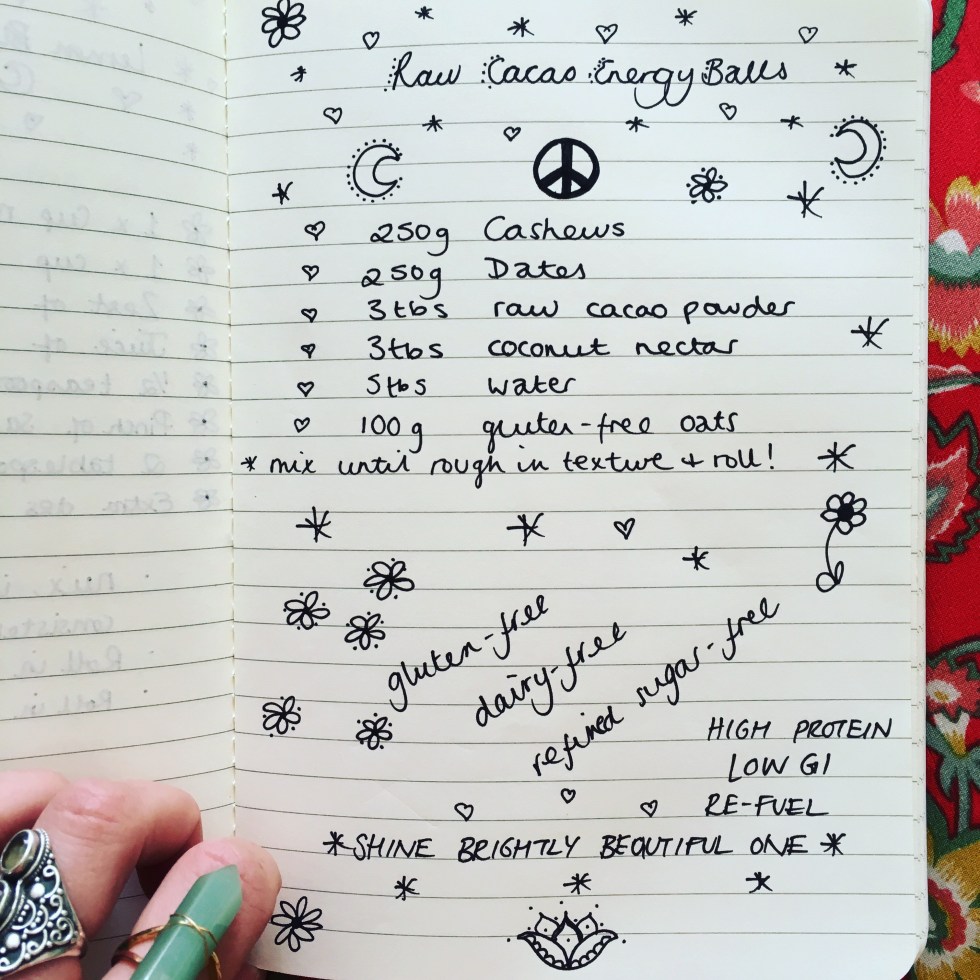 Raw Cacao Energy Balls
250g Cashews
250g Dates
3tbs raw cacao powder
3tbs coconut nectar
5tbs water
100g gluten-free oats
* mix until rough in texture + roll!
gluten-free
dairy-free
refined sugar-free
HIGH PROTEIN
LOW GI
RE-FUEL
*SHINE BRIGHTLY BEAUTIFUL ONE*